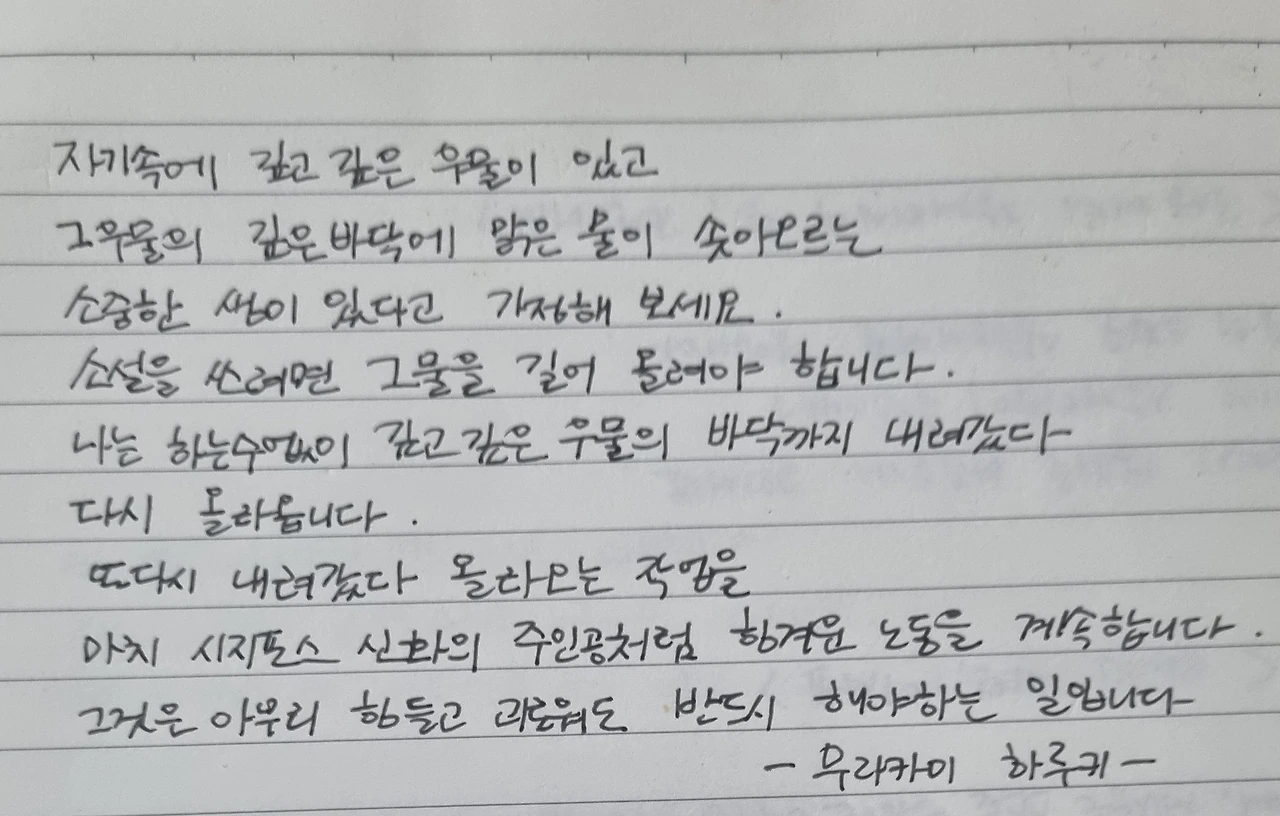 자기속에 깊고 깊은 우물이 있고
그우물의 깊은바닥에 맑은 물이 솟아오르는
소중한 샘이 있다고 가정해 보세요.
소설을 쓰려면 그물을 길어 올려야 합니다.
나는 하는수없이 깊고깊은 우물의 바닥까지 내려갔다
다시 올라옵니다.
또다시 내려갔다 올라오는 작업을
마치 시지포스 신화의 주인공처럼 힘겨운 노동을 계속합니다.
그것은 아무리 힘들고 괴로워도 반드시 해야하는 일입니다
- 무라카미 하루키 -